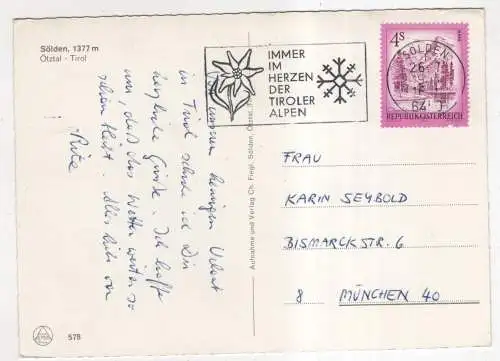 Sölden, 1377 m
Ötztal - Tirol
IMMER
IM
HERZEN
DER
TIROLER
ALPEN
SÖLDEN
4S
REPUBLIK ÖSTERREICH
Aus unserem kurzen Urlaub
in Tirol sende ich Dir
herzliche Grüße. Ich hoffe
nur, daß das Wetter weiter so
schön bleibt. Alles Liebe von
Aufnahme und Verlag Ch. Fiegl, Sölden, Ötztal,
FRAU
KARIN SEYBOLD
BISMARCKSTR. 6
8 MÜNCHEN 40
578